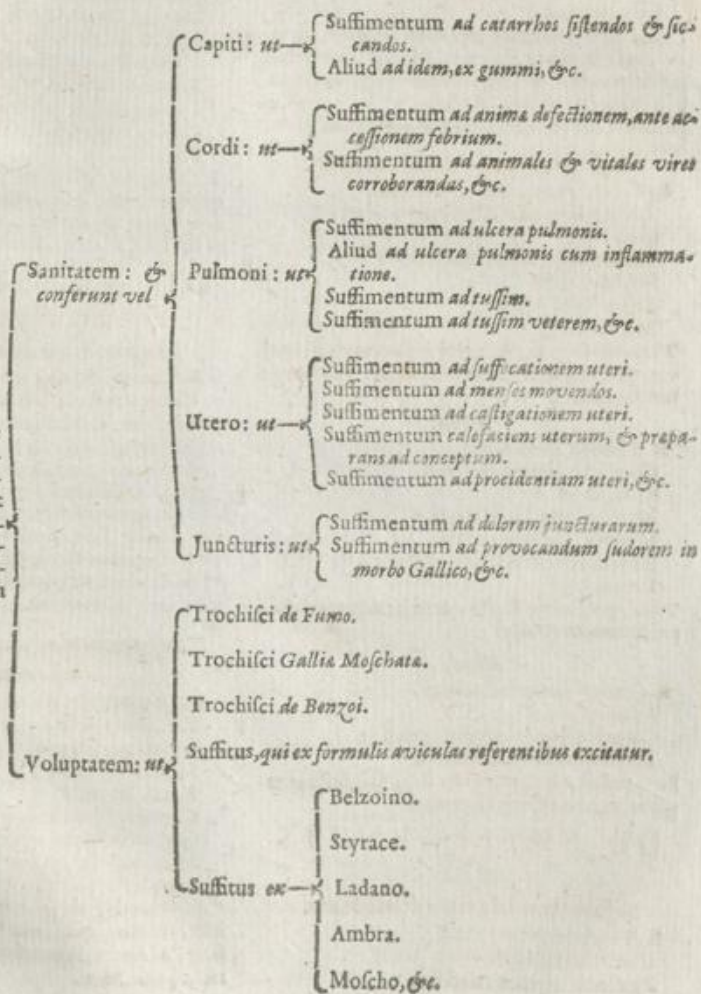 Sanitatem: &
conferunt vel
Capiti: ut
Suffimentum ad catarrhos ſiſtendos & ſic-
candos.
Aliud ad idem, ex gummi, &c.
Cordi: ut
Suffimentum ad animæ defectionem, ante ac-
ceſſionem febrium.
Suffimentum ad animales & vitales vires
corroborandas, &c.
Pulmoni: ut
Suffimentum ad ulcera pulmonis.
Aliud ad ulcera pulmonis cum inflamma-
tione.
Suffimentum ad tuſſim.
Suffimentum ad tuſſim veterem, &c.
Utero: ut
Suffimentum ad ſuffocationem uteri.
Suffimentum ad menſes movendos.
Suffimentum ad caſtigationem uteri.
Suffimentum calefaciens uterum, & præpa-
rans ad conceptum.
Suffimentum ad procidentiam uteri, &c.
Juncturis: ut
Suffimentum ad dolorem juncturarum.
Suffimentum ad provocandum ſudorem in
morbo Gallico, &c.
Voluptatem: ut
Trochiſci de Fumo.
Trochiſci Galliæ Moſchatæ.
Trochiſci de Benzoi.
Suffitus, qui ex formulis aviculas referentibus excitatur.
Suffitus ex
Belzoino.
Styrace.
Ladano.
Ambra.
Moſcho, &c.